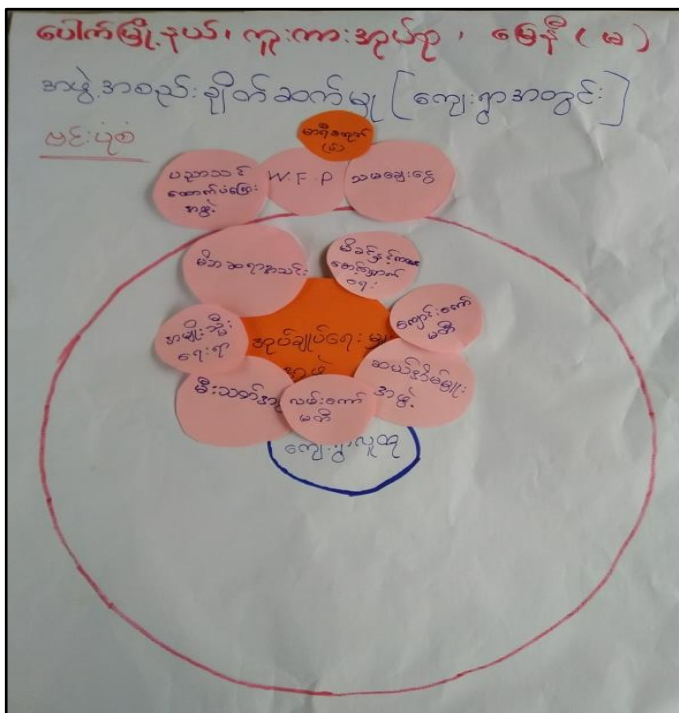 ပေါက်မြို့နယ်၊ ကူးကားအုပ်စု၊ မြေနီ (မ)
အဖွဲ့အစည်းချိတ်ဆက်မှု [ကျေးရွာအတွင်း]
ဗင်းပုံစံ
ပညာသင်
ထောက်ပံ့ကြေး
အဖွဲ့
W.F.P
သမချေးငွေ
မိဘဆရာအသင်း
မိခင်နှင့်ကလေး
စောင့်ရှောက်
ရေး
အမျိုးသမီး
ရေးရာ
အုပ်ချုပ်ရေးမှူး
အဖွဲ့
ကျောင်းကော်
မတီ
မီးသတ်
လမ်းကော်
မတီ
ဆယ်အိမ်မှူး
အဖွဲ့
ကျေးရွာလူထု